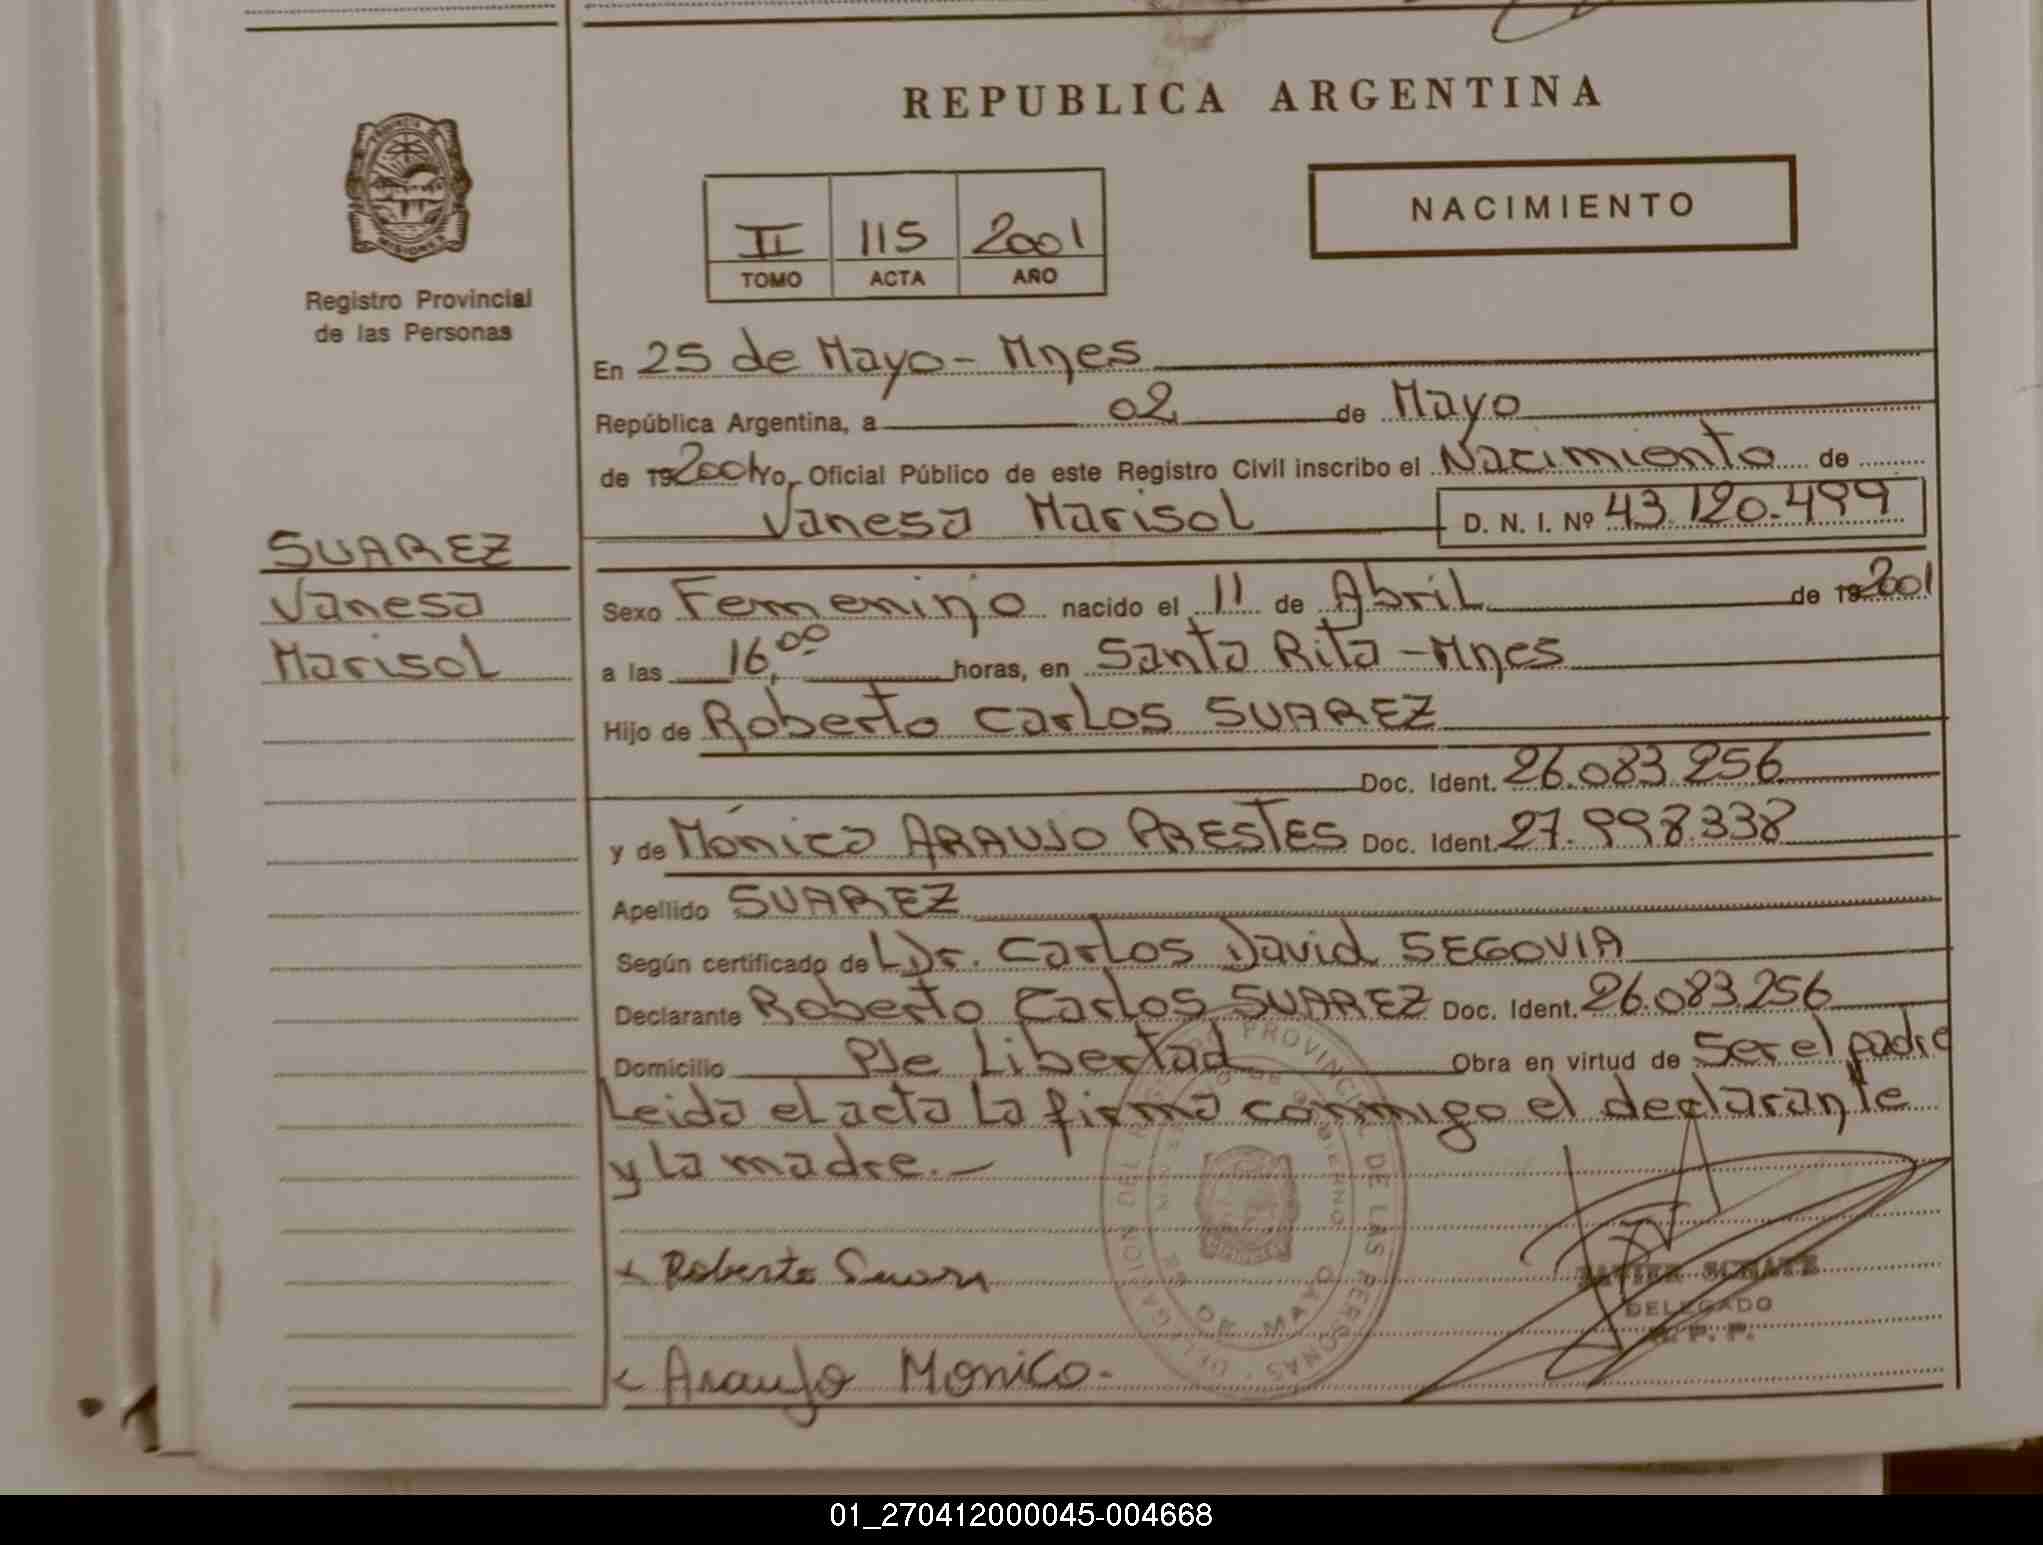 REPUBLICA ARGENTINA
PROVINCIA DE
MISIONES
Registro Provincial
de las Personas
II 115 2001
TOMO ACTA AÑO
NACIMIENTO
En 25 de Mayo - Mnes
República Argentina, a 02 de Mayo
de 19 2001 Yo, Oficial Público de este Registro Civil inscribo el Nacimiento de
Vanesa Marisol D. N. I. Nº 43.120.499
SUAREZ
Vanesa
Marisol
Sexo Femenino nacido el 11 de Abril de 19 2001
a las 16,00 horas, en Santa Rita - Mnes
Hijo de Roberto Carlos SUAREZ
Doc. Ident. 26.083.256
y de Mónica ARAUJO PRESTES Doc. Ident. 27.998.338
Apellido SUAREZ
Según certificado de L Dr. Carlos David SEGOVIA
Declarante Roberto Carlos SUAREZ Doc. Ident. 26.083.256
Domicilio Pje Libertad Obra en virtud de Ser el padre
Leida el acta la firma conmigo el declarante
y la madre. -
DELEGACION DEL REGISTRO PROVINCIAL DE LAS PERSONAS
DE MAYO
x Roberto Suarez
DELEGADO
R. P. P.
x Araujo Monica.
01_270412000045-004668